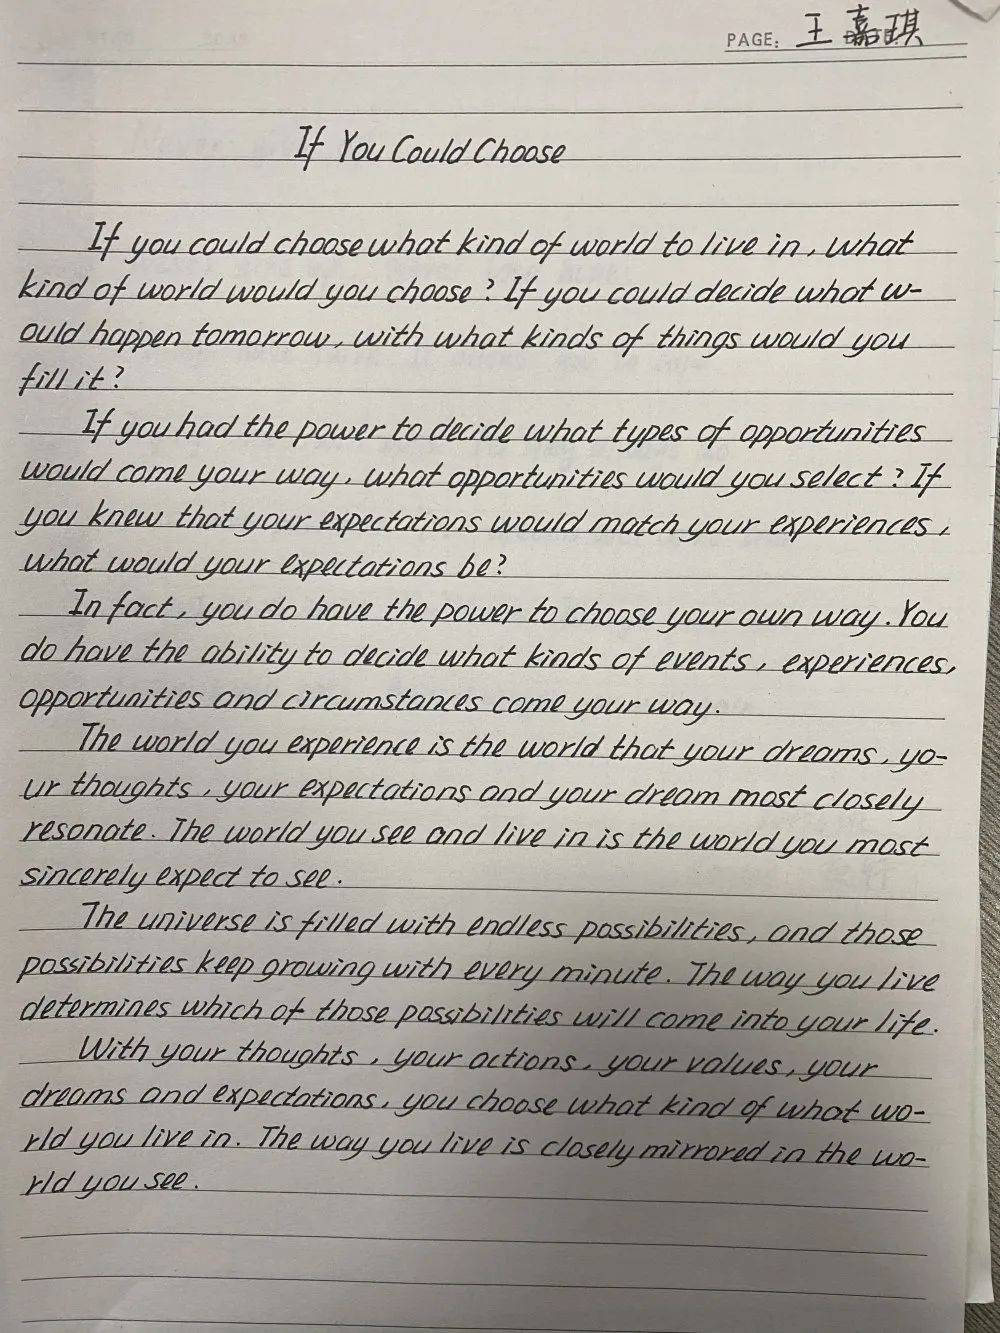 PAGE: 王嘉琪
If You Could Choose
If you could choose what kind of world to live in, what
kind of world would you choose? If you could decide what w-
ould happen tomorrow, with what kinds of things would you
fill it?
If you had the power to decide what types of opportunities
would come your way, what opportunities would you select? If
you knew that your expectations would match your experiences,
what would your expectations be?
In fact, you do have the power to choose your own way. You
do have the ability to decide what kinds of events, experiences,
opportunities and circumstances come your way.
The world you experience is the world that your dreams, yo-
ur thoughts, your expectations and your dream most closely
resonate. The world you see and live in is the world you most
sincerely expect to see.
The universe is filled with endless possibilities, and those
possibilities keep growing with every minute. The way you live
determines which of those possibilities will come into your life.
With your thoughts, your actions, your values, your
dreams and expectations, you choose what kind of what wo-
rld you live in. The way you live is closely mirrored in the wo-
rld you see.